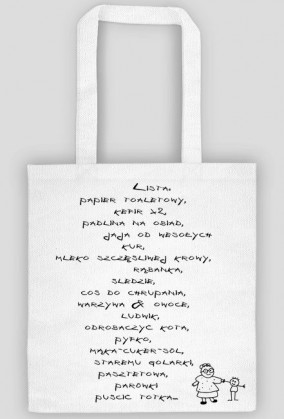 Lista:
papier toaletowy,
kefir x2,
padlina na obiad,
jaja od wesołych
kur,
mleko szczęśliwej krowy,
rąbanka,
śledzie,
coś do chrupania,
warzywa & owoce,
Ludwik,
odrobaczyć kota,
pyfko,
mąka-cuker-sól,
staremu golarki,
pasztetowa,
parówki
puścić totka...